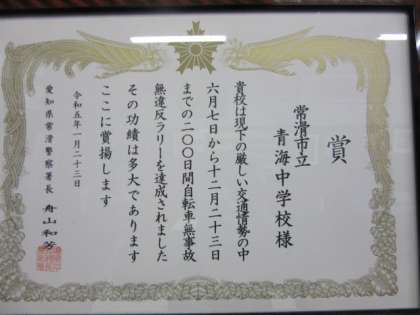 賞
常滑市立
青海中学校様
貴校は現下の厳しい交通情勢の中
六月七日から十二月二十三日
までの二〇〇日間自転車無事故
無違反ラリーを達成されました
その功績は多大であります
ここに賞揚します
令和五年一月二十三日
愛知県常滑警察署長 舟山和芳